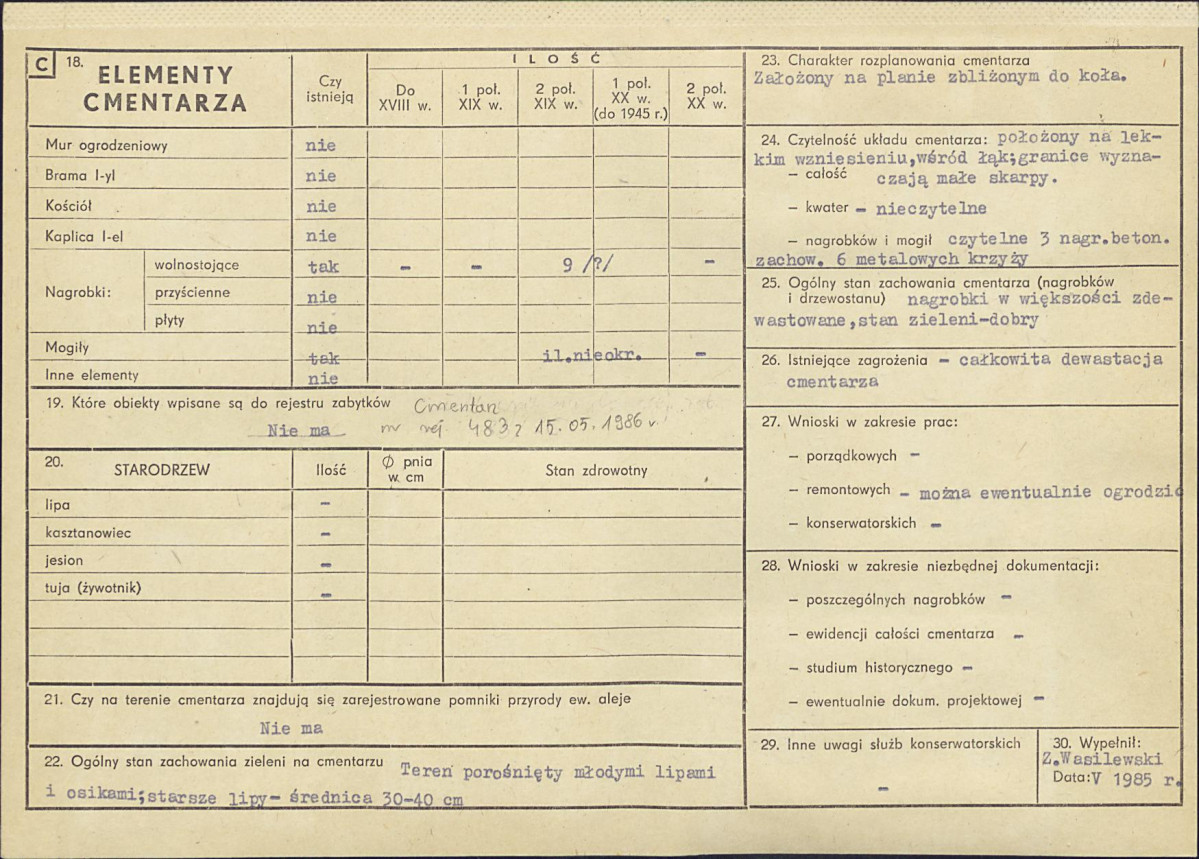 C 18. ELEMENTY
CMENTARZA
Czy
istnieją
I L O Ś Ć
Do
XVIII w.
1 poł.
XIX w.
2 poł.
XIX w.
1 poł.
XX w.
(do 1945 r.)
2 poł.
XX w.
Mur ogrodzeniowy nie
Brama I-yl nie
Kościół nie
Kaplica I-el nie
Nagrobki:
wolnostojące tak - - 9 /?/ -
przyścienne nie
płyty nie
Mogiły tak il.nieokr. -
Inne elementy nie
19. Które obiekty wpisane są do rejestru zabytków Cmentarz
Nie ma nr rej 483 z 15.05.1986 r
20. STARODRZEW Ilość Ø pnia
w. cm
Stan zdrowotny
lipa -
kasztanowiec -
jesion -
tuja (żywotnik) -
21. Czy na terenie cmentarza znajdują się zarejestrowane pomniki przyrody ew. aleje
Nie ma
22. Ogólny stan zachowania zieleni na cmentarzu Teren porośnięty młodymi lipami
i osikami;starsze lipy- średnica 30-40 cm
23. Charakter rozplanowania cmentarza
Założony na planie zbliżonym do koła.
24. Czytelność układu cmentarza: położony na lek-
kim wzniesieniu,wśród łąk;granice wyzna-
– całość czają małe skarpy.
– kwater - nieczytelne
– nagrobków i mogił czytelne 3 nagr.beton.
zachow. 6 metalowych krzyży
25. Ogólny stan zachowania cmentarza (nagrobków
i drzewostanu) nagrobki w większości zde-
wastowane,stan zieleni-dobry
26. Istniejące zagrożenia - całkowita dewastacja
cmentarza
27. Wnioski w zakresie prac:
– porządkowych -
– remontowych - można ewentualnie ogrodzić
– konserwatorskich -
28. Wnioski w zakresie niezbędnej dokumentacji:
– poszczególnych nagrobków -
– ewidencji całości cmentarza -
– studium historycznego -
– ewentualnie dokum. projektowej -
29. Inne uwagi służb konserwatorskich
-
30. Wypełnił:
Z.Wasilewski
Data:V 1985 r.